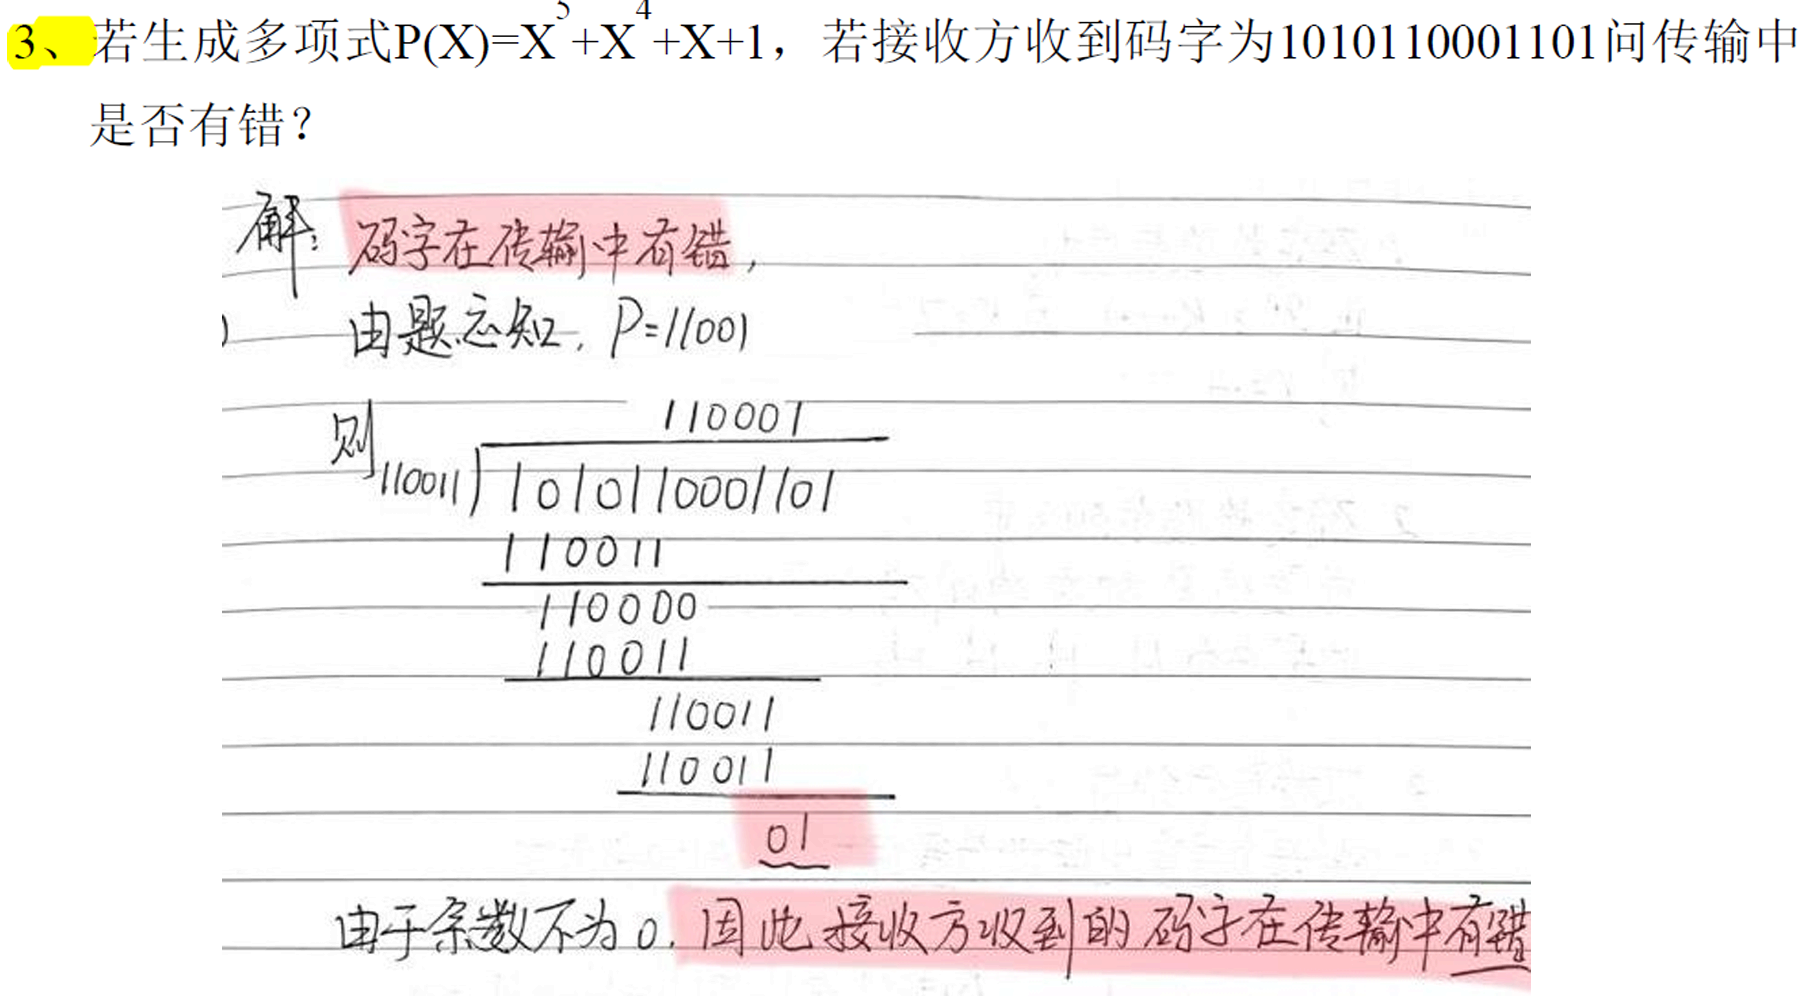 3、若生成多项式P(X)=X⁵+X⁴+X+1，若接收方收到码字为1010110001101问传输中
是否有错？
解：码字在传输中有错，
由题意知，P=11001
110001
则110011)1010110001101
110011
110000
110011
110011
110011
01
由于余数不为0，因此接收方收到的码字在传输中有错